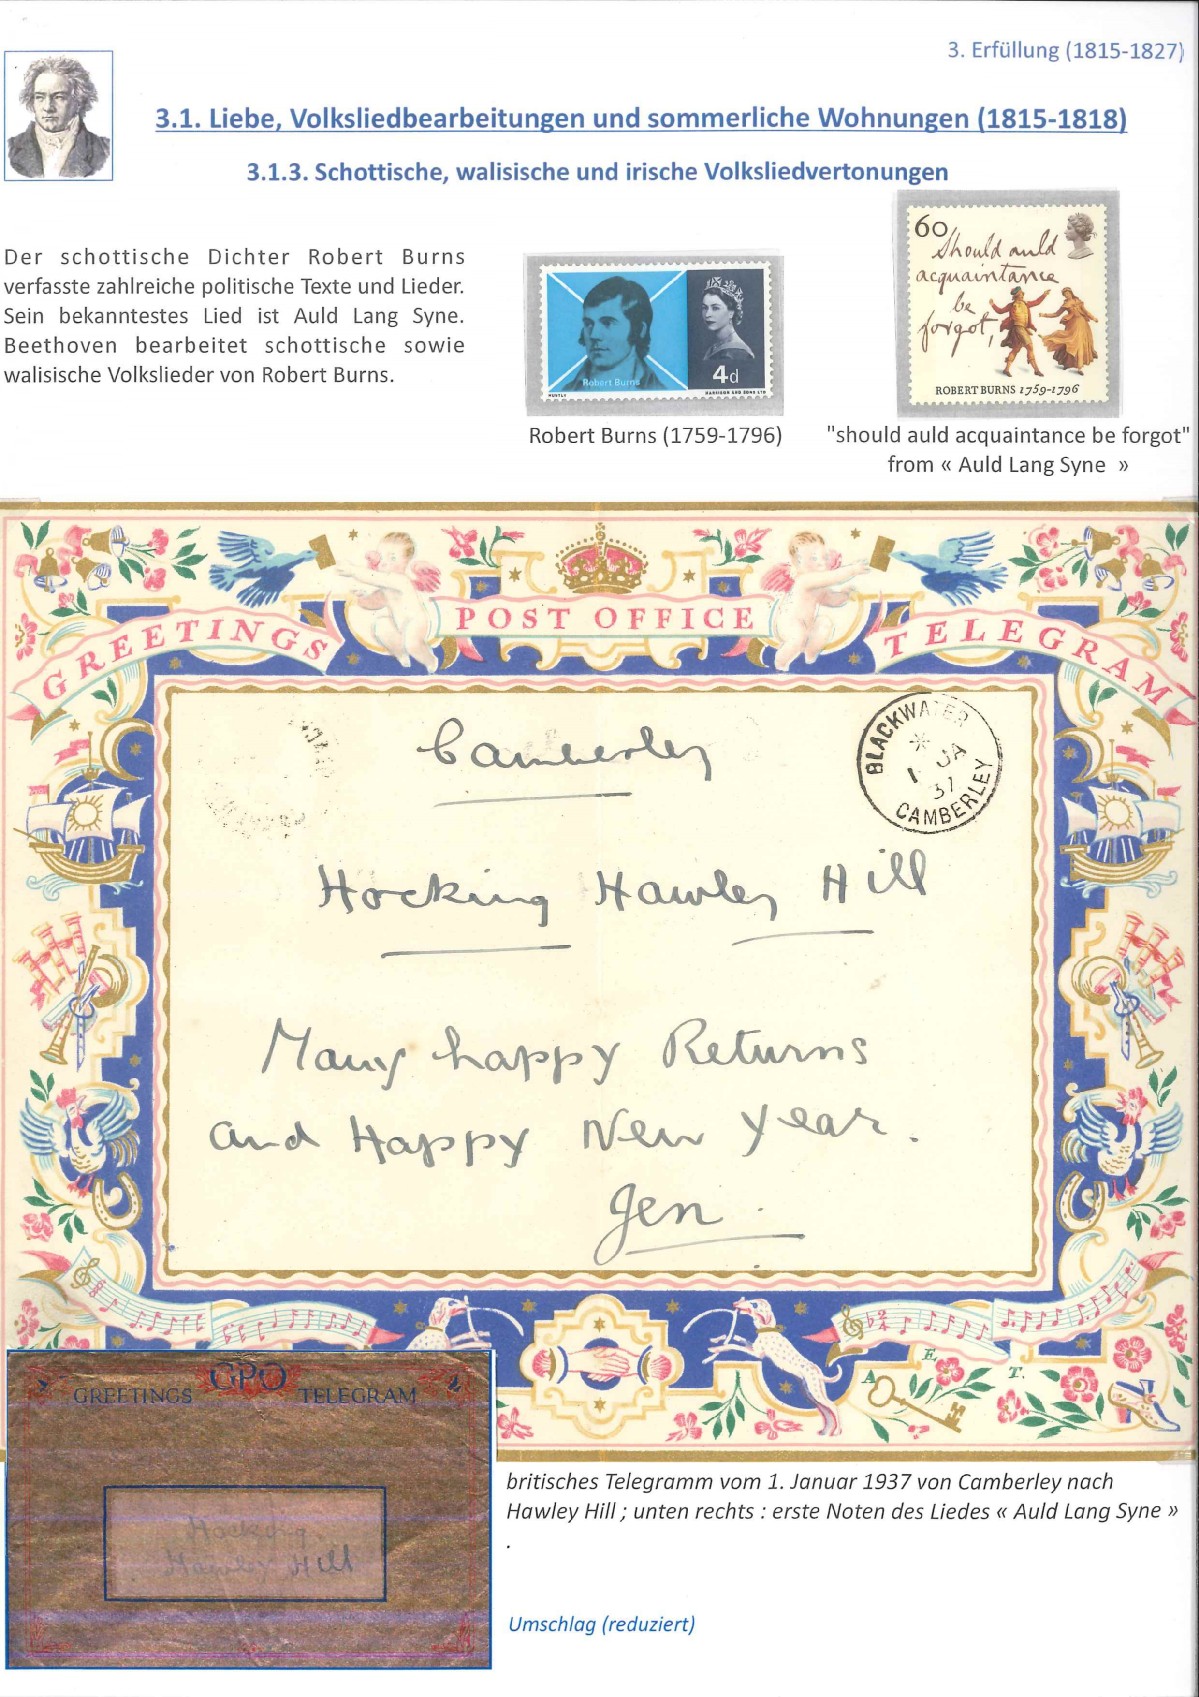 3. Erfüllung (1815-1827)
3.1. Liebe, Volksliedbearbeitungen und sommerliche Wohnungen (1815-1818)
3.1.3. Schottische, walisische und irische Volksliedvertonungen
Der schottische Dichter Robert Burns
verfasste zahlreiche politische Texte und Lieder.
Sein bekanntestes Lied ist Auld Lang Syne.
Beethoven bearbeitet schottische sowie
walisische Volkslieder von Robert Burns.
Robert Burns
4d
HARRISON AND SONS LTD
60
Should auld
acquaintance
be
forgot,
ROBERT BURNS 1759-1796
Robert Burns (1759-1796)
"should auld acquaintance be forgot"
from « Auld Lang Syne »
GREETINGS POST OFFICE TELEGRAM
Camberley
BLACKWATER
1 JA
37
CAMBERLEY
Hocking Hawley Hill
Many happy Returns
and Happy New Year.
Jen.
A E T.
GREETINGS GPO TELEGRAM
Hocking.
Hawley Hill
britisches Telegramm vom 1. Januar 1937 von Camberley nach
Hawley Hill ; unten rechts : erste Noten des Liedes « Auld Lang Syne »
.
Umschlag (reduziert)